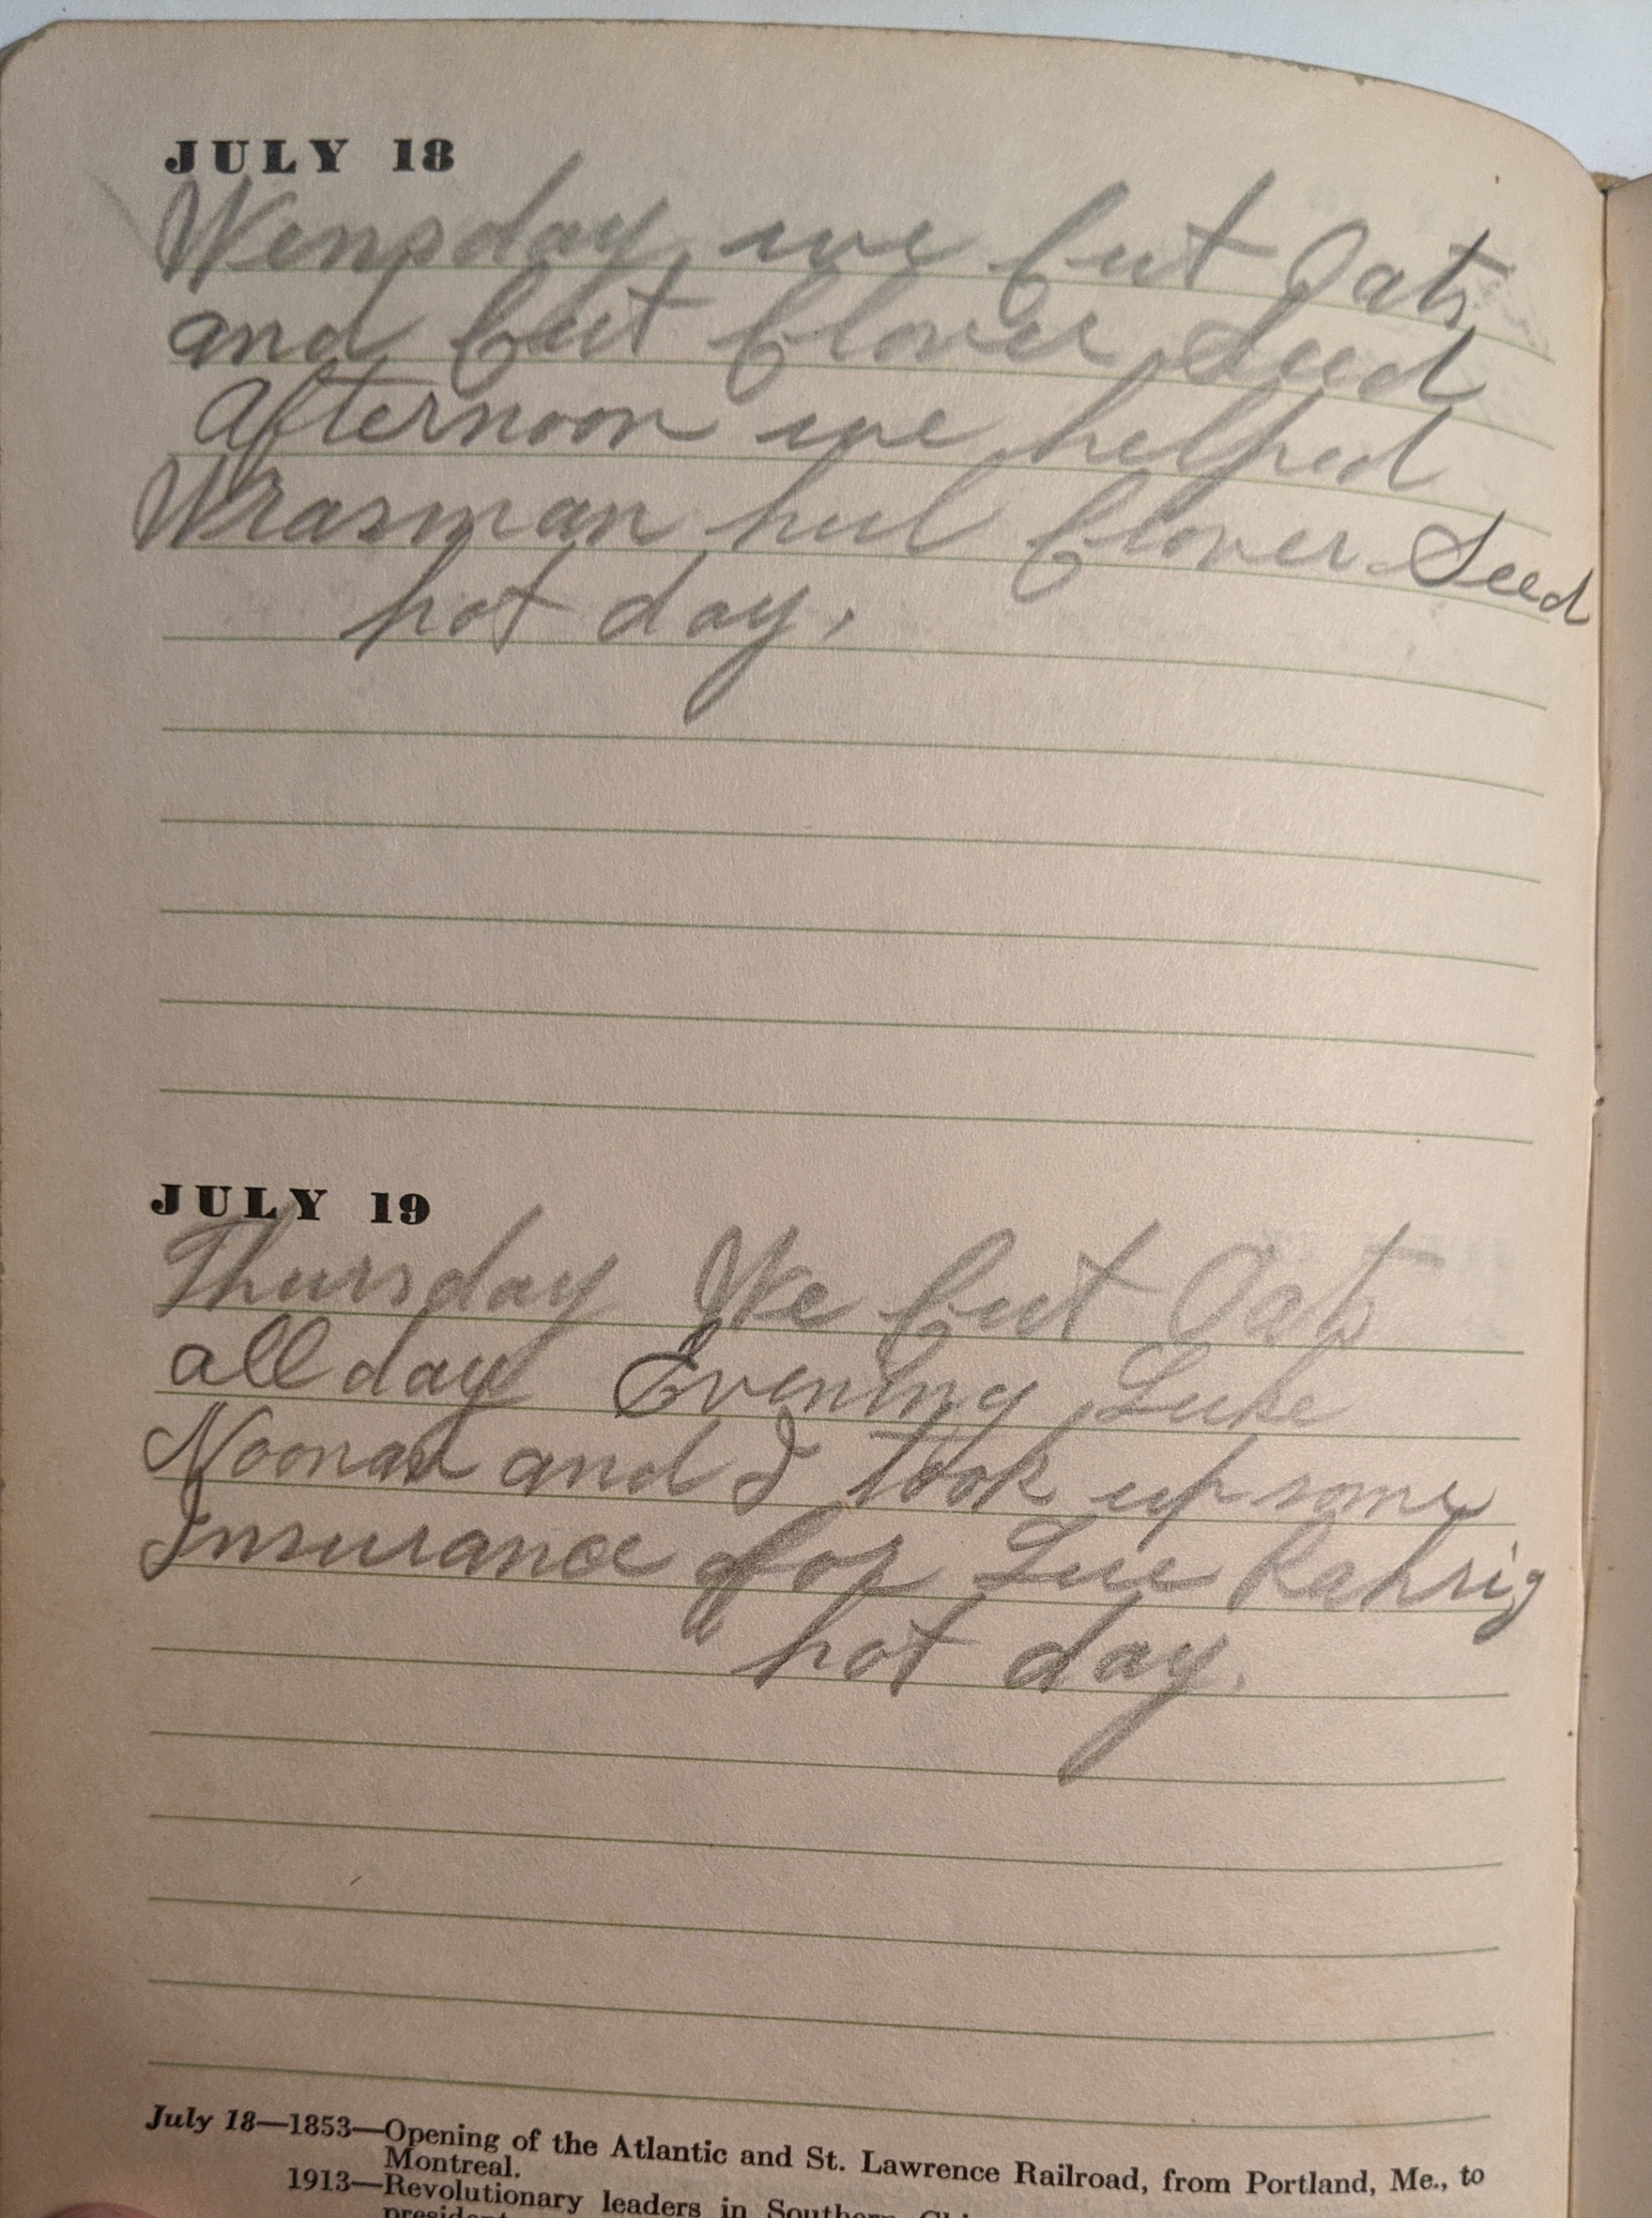 JULY 18
Wensday we Cut Oats
and Cut Clover Seed
Afternoon we helped
Wrasman hul Clover Seed
hot day.
JULY 19
Thursday We Cut Oats
all day Evening Luke
Noonan and I took up some
Insurance for Lue Rahrig
hot day.
July 18—1853—Opening of the Atlantic and St. Lawrence Railroad, from Portland, Me., to
Montreal.
1913—Revolutionary leaders in Southern